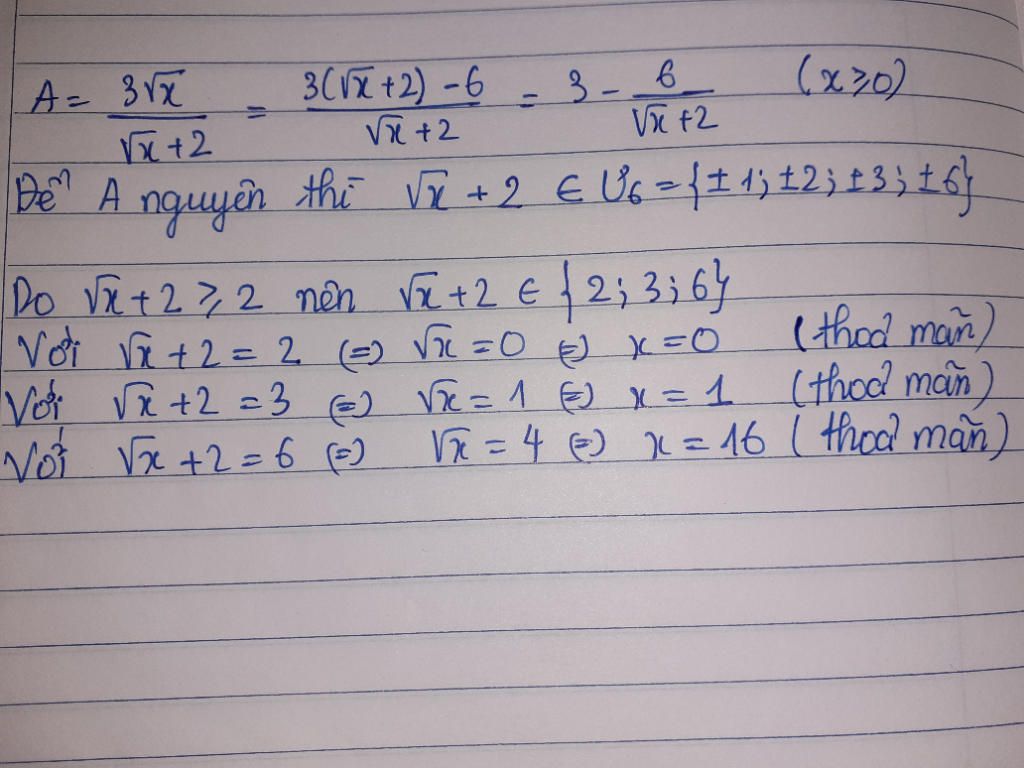 A = 3√x / (√x + 2) = (3(√x + 2) - 6) / (√x + 2) = 3 - 6 / (√x + 2) (x ⩾ 0)
Để A nguyên thì √x + 2 ∈ Ư₆ = {± 1; ±2; ±3; ±6}
Do √x + 2 ⩾ 2 nên √x + 2 ∈ {2; 3; 6}
Với √x + 2 = 2 (=) √x = 0 (=) x = 0 (thoả mãn)
Với √x + 2 = 3 (=) √x = 1 (=) x = 1 (thoả mãn)
Với √x + 2 = 6 (=) √x = 4 (=) x = 16 (thoả mãn)